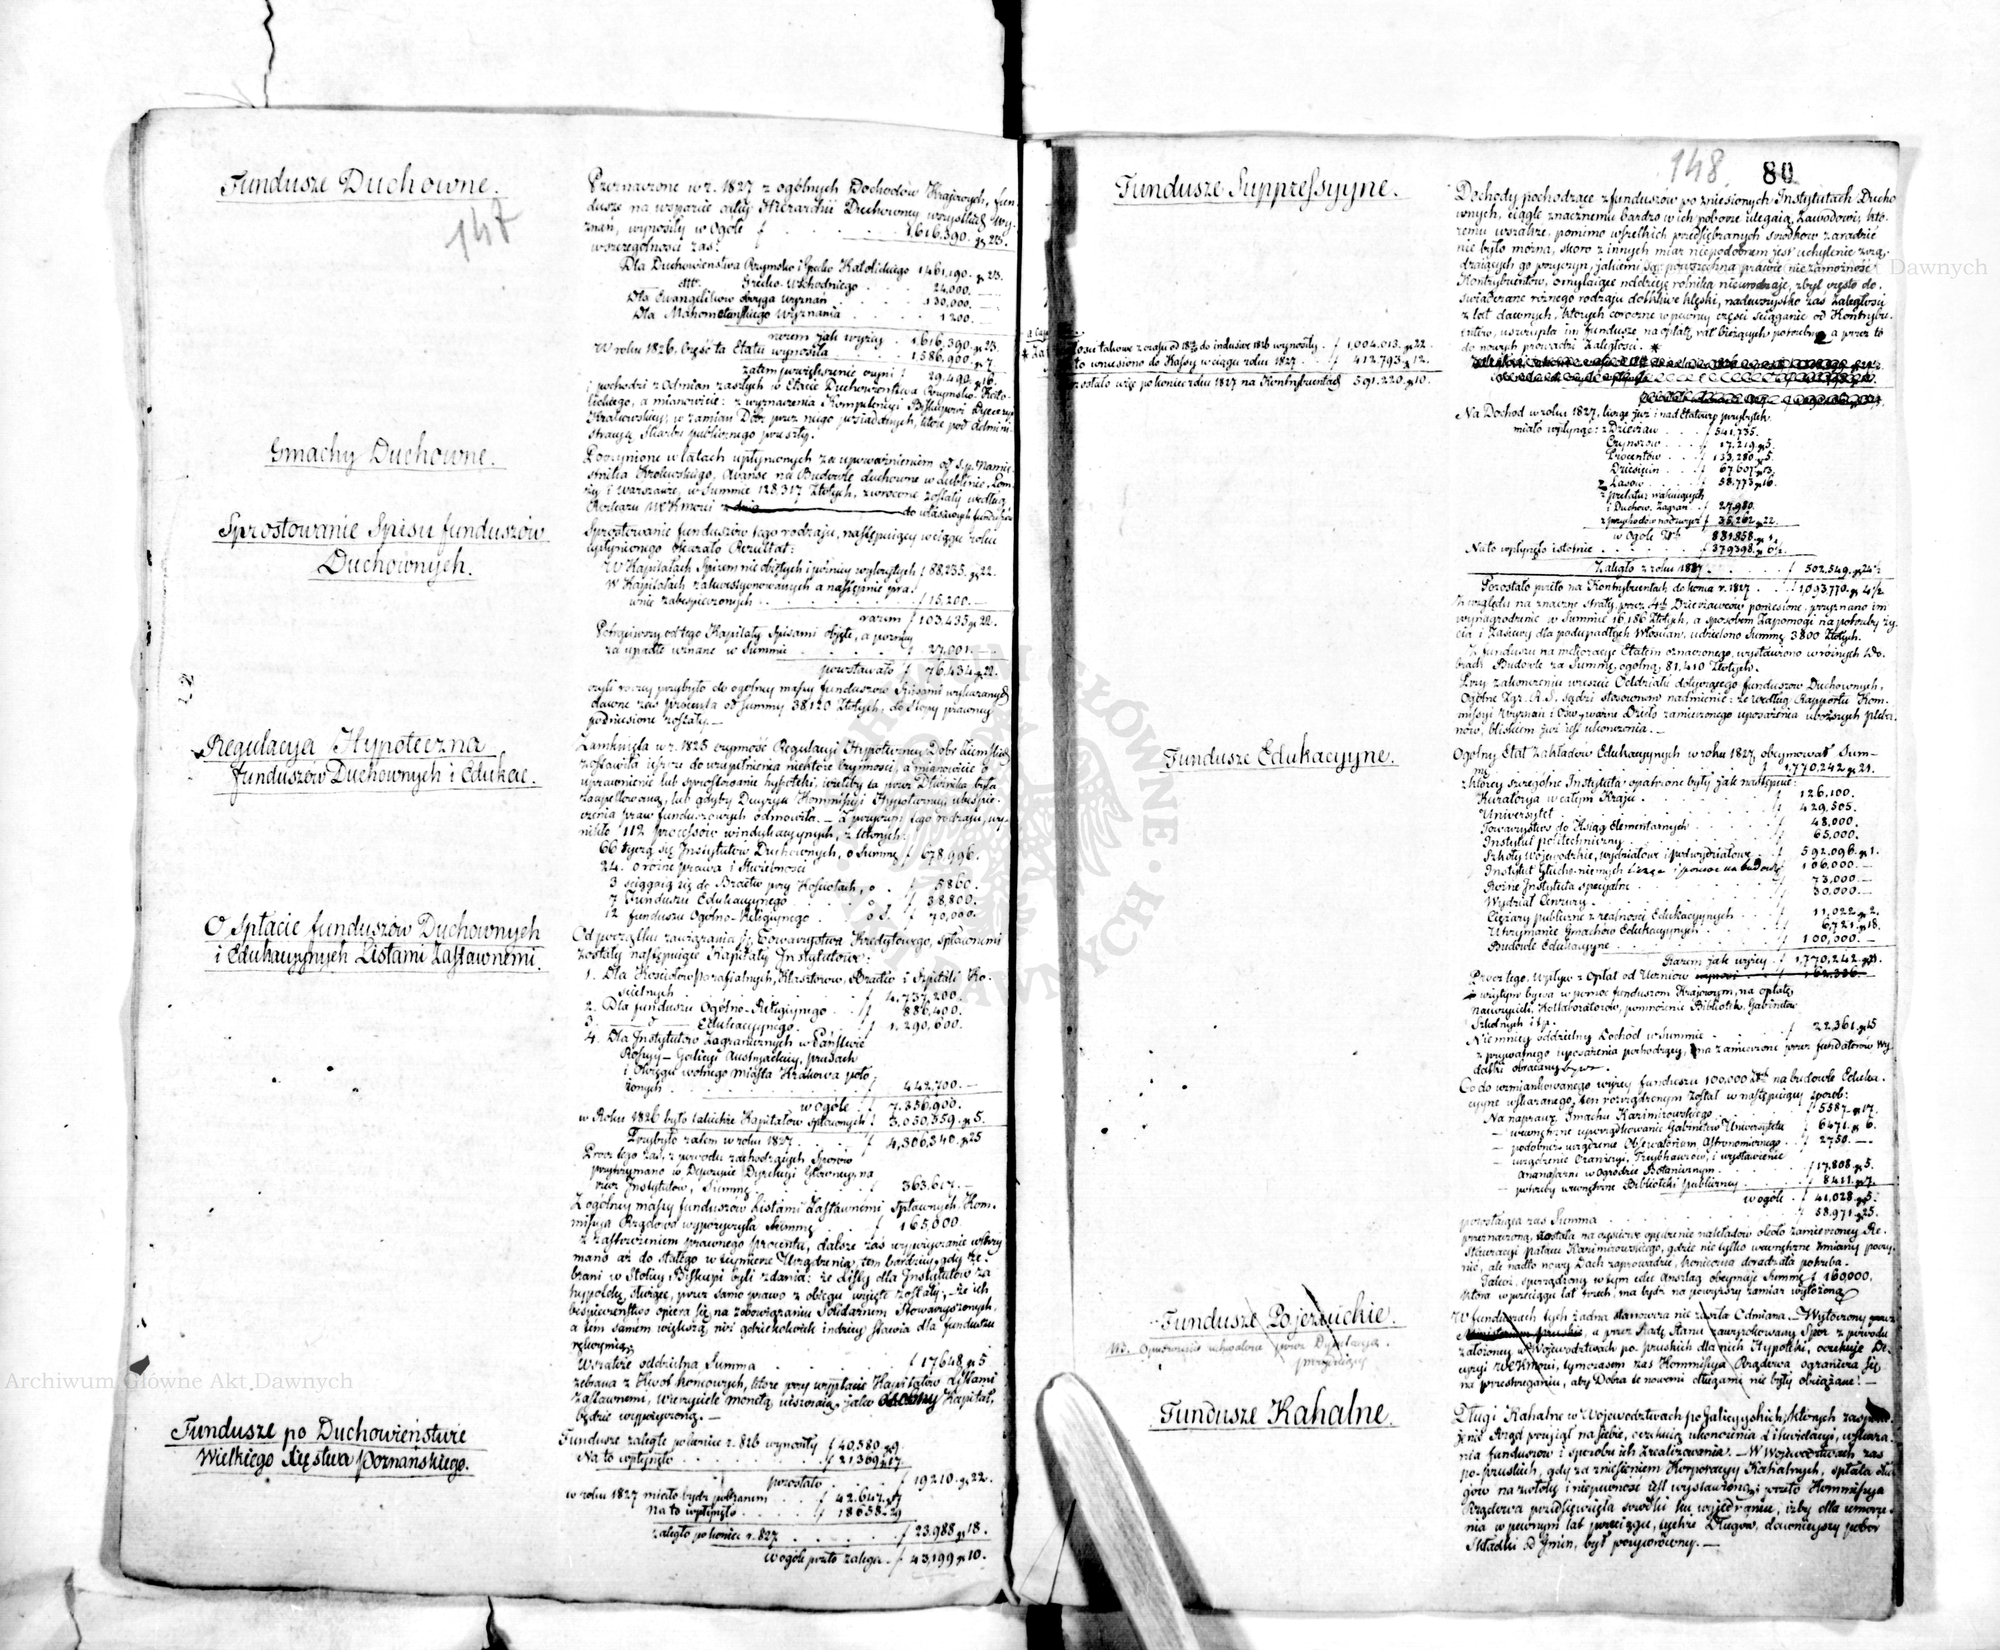 Fundusze Duchowne.
147
Przeznaczone w r. 1827 z ogólnych Dochodów Krajowych, fun-
dusze na wsparcie całey Hierarchii Duchowney wszystkich Wy-
znań, wynosiły w Ogóle f 1,616,390. gr 23.
wszczególności zaś:
Dla Duchowieństwa Rzymsko i Grecko Katolickiego 1,461,190. gr 23.
Grecko-Wschodniego 24,000. —
Dla Ewangelików obojga Wyznań 130,000. —
Dla Mahometańskiego Wyznania 1200. —
razem jak wyżey 1,616,390. gr 23.
W roku 1826, Część ta Etatu wynosiła 1,586,900. gr 7.
zatem powiększenie czyni f 29,490. gr 16.
i pochodzi z Odmian zaszłych w Etacie Duchowieństwa Rzymsko-Kato-
lickiego, a mianowicie: z wyznaczenia Kompetencyi Biskupowi Dyecezyi
Krakowskiey, w zamian Dóbr przez niego posiadanych, które pod Admini-
stracyą Skarbu publicznego przeszły.
Gmachy Duchowne.
Poczynione w latach upłynionych za upoważnieniem od s.p. Namie-
stnika Królewskiego, Awanse na Budowle duchowne w Lublinie, Łom-
ży i Warszawie, w Summie 128,317 Złotych, zwrócone zostały według
do właściwych funduszów
Sprostowanie Spisu funduszów
Duchownych.
Sprostowanie funduszów tego rodzaju, następujący w ciągu roku
upłynionego okazało Rezultat:
W Kapitałach Spisem nie objętych i później wykrytych f 88,235. gr 22.
W Kapitałach zakwestyonowanych a następnie pra-
wnie zabezpieczonych f 15,200. —
razem f 103,435 gr 22.
Potrąciwszy od tego Kapitały Spisami objęte, a poźniey
za upadłe uznane w Summie 27,001. —
pozostawało f 76,434 gr 22.
czyli rzeczy przybyło do ogólney massy funduszów Spisami wykazanych
dawne zaś procenta od Summy 38120 Złotych, do stopy prawney
podniesione zostały. —
Regulacya Hypoteczna
funduszów Duchownych i Edukac.
Zamknięta w r. 1825 czynność Regulacyi Hypoteczney Dóbr Ziemskich
zostawiła ieszcze do uzupełnienia niektóre Czynności, a mianowicie o
usprawnienie lub sprostowanie hypoteki, ieżeliby ta przez Dłużnika była
zaapellowaną, lub gdyby Decyzya Kommissyi Hypoteczney, ubezpie-
czenia praw funduszowych odmówiła. — Z przyczyn tego rodzaju, wy-
nikło 112 Processów windykacyjnych, z których:
66 tyczą się Instytutów Duchownych, o Summę f 678,996.
24. o różne prawa i Służebności
3 ściągaią się do Bractw przy Kościołach, o f 5860.
7 Funduszu Edukacyjnego o f. 38,800.
12 funduszu Ogólno-Religijnego o f. 70,000.
O Spłacie funduszów Duchownych
i Edukacyjnych Listami Zastawnemi.
Od początku zawiązania się Towarzystwa Kredytowego, spłaconemi
zostały następuiące Kapitały Instytutowe:
1. Dla Kościołów parafialnych, Klasztorów, Bractw i Szpitali Ko-
ścielnych f 4,737,200.
2. Dla funduszu Ogólno-Religijnego f 886,400.
3. Edukacyjnego f 1,290,600.
4. Dla Instytutów Zagranicznych w Państwie
Rossyy — Galicyi Austryackiey, Prusach
i Okręgu wolnego miasta Krakowa poło-
żonych 442,700. —
w Ogóle f 7,356,900.
w Roku 1826 było takichże Kapitałów spłaconych f 3,050,559. gr 5.
Przybyło zatem w roku 1827 f 4,306,340. gr 25
Procz tego zaś, z powodu zachodzących Sporów
przytrzymano w Depozycie Dyrekcyi Główney na
rzecz Instytutów, Summę f 363,617. —
Z ogólney massy funduszów Listami Zastawnemi spłaconych, Kom-
missya Rządowa wypożyczyła Summę f 165,000
z zastrzeżeniem prawnego procentu, dalsze zaś wypożyczanie wstrzy
mano aż do stałego w teymierze Urządzenia, tem bardziey, gdy ze-
brani w Stolicy Biskupi byli zdania: że Listy dla Instytutów za
hypotekę służące, przez samo prawo z obiegu wyjęte zostały, — że ich
bezpieczeństwo opiera się na zobowiązaniu Solidarnem Stowarzyszonych,
a tém samém większą, niż gdziekolwiek indziey stawia dla funduszu
rękoymią.
Wszakże oddzielna Summa f 17648. gr 5.
zebrana z Kwot końcowych, które przy wypłacie Kapitałów Listami
Zastawnemi, w brzęczącey monetą uiszczaią, jako osobny Kapitał,
będzie wypożyczoną. —
Fundusze po Duchowieństwie
Wielkiego Xięstwa Poznańskiego.
Fundusze zaległe po koniec r. 826 wynosiły f 40,580 gr 9.
Na to wpłynęło f 21369 gr 17
pozostało f 19210. gr 22.
w roku 1827 miało bydź pobranem f 42,647. gr 17
Na to wpłynęło f 18658. 29
zaległo po koniec r. 827 f 23,988 gr 18.
W ogóle przeto zalega f 43,199 gr 10.
148
80
Fundusze Suppressyyne.
Dochody pochodzące z funduszów po zniesionych Instytutach Ducho
wnych, ciągle znacznemu bardzo w ich poborze ulegaią Zawodowi, któ-
remu wszakże, pomimo wszelkich przedsiębranych środków zaradzić
nie było można, skoro z innych miar niepodobnem jest uchylenie zrzą-
dzaiących go przyczyn, jakiemi są: powszechna prawie niezamożność
Kontrybuentów, omylaiące nadzieję rolnika nieurodzaje, zbyt często do-
świadczane różnego rodzaju dotkliwe klęski, nadewszystko zaś zaległości
z lat dawnych, których coroczne w pewney części ściąganie od Kontrybu-
entów, uszczupla im fundusze na opłatę rat bieżących potrzebne, a przez to
do nowych prowadzi Zaległości. *
* Zaległości takowe z czasu od 18 do indusive 1826 wynosiły f 1,004,013. gr 22.
to wniesiono do Kassy w ciągu roku 1827 f 412,793. gr 12.
zostało więc po koniec roku 1827 na Kontrybuentach 591,220. gr 10.
Na Dochod w roku 1827, licząc już i nad Etatowy przybytek
miało wpłynąć: z Dzierżaw f 541,735.
Czynszów f 17,219 gr 5.
Procentów f 133,280 gr 5.
Dziesięcin f 67,607 gr 3.
z Lasów f 58,773 gr 16.
z prelatur wakuiących
i Duchow. Zagran. f 27,980.
z przychodów nadzwycz. f 35,262 gr 22.
w Ogóle Złt. 881,858. gr 1.
Na to wpłynęło istotnie f 379,398. gr 6½
Zaległo z roku 1827 f 502,549. gr 24½
Pozostało przeto na Kontrybuentach do końca r. 1827 f 1,093,770. gr 4½
Z względu na znaczne straty, przez 4ch Dzierżawców poniesione, przyznano im
wynagrodzenie w Summie 16,186 Złotych, a sposobem Zapomogi na potrzeby ży-
cia i Zasiewy dla podupadłych Włościan, udzielono Summę 3800 Złotych.
Z funduszu na melioracye Etatem oznaczonego, wystawiono w różnych Do-
brach Budowle za Summę, ogólną, 81,410 Złotych.
Przy zakończeniu wreszcie Oddziału dotyczącego funduszów Duchownych,
Ogólne Zgr. R. S. sądzi stosownem nadmienić: że według Rapportu Kom-
missyi Wyznań i Ośw. ważne Dzieło zamierzonego uposażenia uboższych pleba-
nów, bliskiem już jest ukończenia. —
Fundusze Edukacyyne.
Ogólny Etat Zakładów Edukacyjnych w roku 1827, obeymował Sum-
mę f 1,770,242 gr 21.
z którey szczególne Instytuta opatrzone były jak następuie:
Kuratorya w całym Kraju f 126,100.
Uniwersytet f 429,505.
Towarzystwo do Ksiąg Elementarnych f 48,000.
Instytut politechniczny f 65,000.
Szkoły Wojewódzkie, wydziałowe i podwydziałowe f 592,096. gr 1.
Instytut Głucho-niemych i pomoc na budowlę 106,000. —
Różne Instytuta specyalne f 73,000. —
Wydział Cenzury f 30,000. —
Ciężary publiczne z realności Edukacyjnych f 11,022. gr 2.
Utrzymanie Gmachów Edukacyjnych 6,721. gr 18.
Budowle Edukacyjne f 100,000. —
Razem jak wyżey f 1,770,242. gr 21.
Procz tego, Wpływ z Opłat od Uczniów
użytym bywa w pomoc funduszom Krajowym, na opłatę
nauczycieli, Kollaboratorów, pomnożenia Bibliotek, Gabinetów
Szkolnych i t.p.
Niemniey oddzielny Dochód w Summie f 22,361. gr 15
z prywatnego uposażenia pochodzący, na zamierzone przez fundatorów Wy-
datki obracany bywa.
Co do wzmiankowanego wyżey funduszu 100,000 Złt. na budowle Eduka-
cyjne wskazanego, ten rozrządzonym został w następuiący sposób:
Na naprawę Gmachu Kazimirowskiego f 5587. gr 17.
— wewnętrzne uporządkowanie Gabinetów Uniwersytetu f 6471. gr 6.
— podobneż urządzenie Obserwatorium Astronomicznego f 2750. —
— urządzenie Oranżeryi, Treybhauzów, i wystawienie
Ananasarni w Ogrodzie Botanicznym f 17,808. gr 5.
— potrzeby wewnętrzne Biblioteki publiczney f 8411. gr 7.
w ogóle f 41,028. gr 5.
pozostaiąca zaś Summa f 58,971. gr 25.
przeznaczoną została na częściowe opędzenie nakładów około zamierzoney Re-
stauracyi pałacu Kazimirowskiego, gdzie nie tylko wewnętrzne zmiany poczy-
nić, ale nadto nowy Dach zaprowadzić, konieczna doradzała potrzeba.
Jakoż, sporządzony w tym celu Anszlag obeymuje Summę f 160,000,
która w przeciągu lat trzech, ma bydź na powyższy zamiar wyłożoną.
Fundusze Pojezuickie.
W funduszach tych żadna stanowcza nie zaszła Odmiana. — Wytoczony przez
a przez Radę Stanu zawyrokowany Spór z powodu
założoney w Województwach po-pruskich dla nich Hypoteki, oczekuje De-
cyzyi WCKMości, tymczasem zaś Kommissya Rządowa ogranicza się
na przestrzeganiu, aby Dobra te nowemi długami nie były obciążane! —
Fundusze Kahalne.
Długi Kahalne w Województwach po Galicyjskich, których zaspoko-
jenie Rząd przyjął na siebie, oczekują ukończenia Likwidacyi, wskaza-
nia funduszów i sposobu ich Zrealizowania. — W Województwach zaś
po-pruskich, gdy za zniesieniem Korporacyy Kahalnych, spłata dłu-
gów na zwłokę i niepewność jest wystawioną; przeto Kommissya
Rządowa przedsięwzięła środki ku wyjednaniu, iżby dla umorze-
nia w pewnym lat przeciągu, tychże Długów, dawnieyszy pobór
Składki z Gmin, był przywrócony. —
Archiwum Główne Akt Dawnych